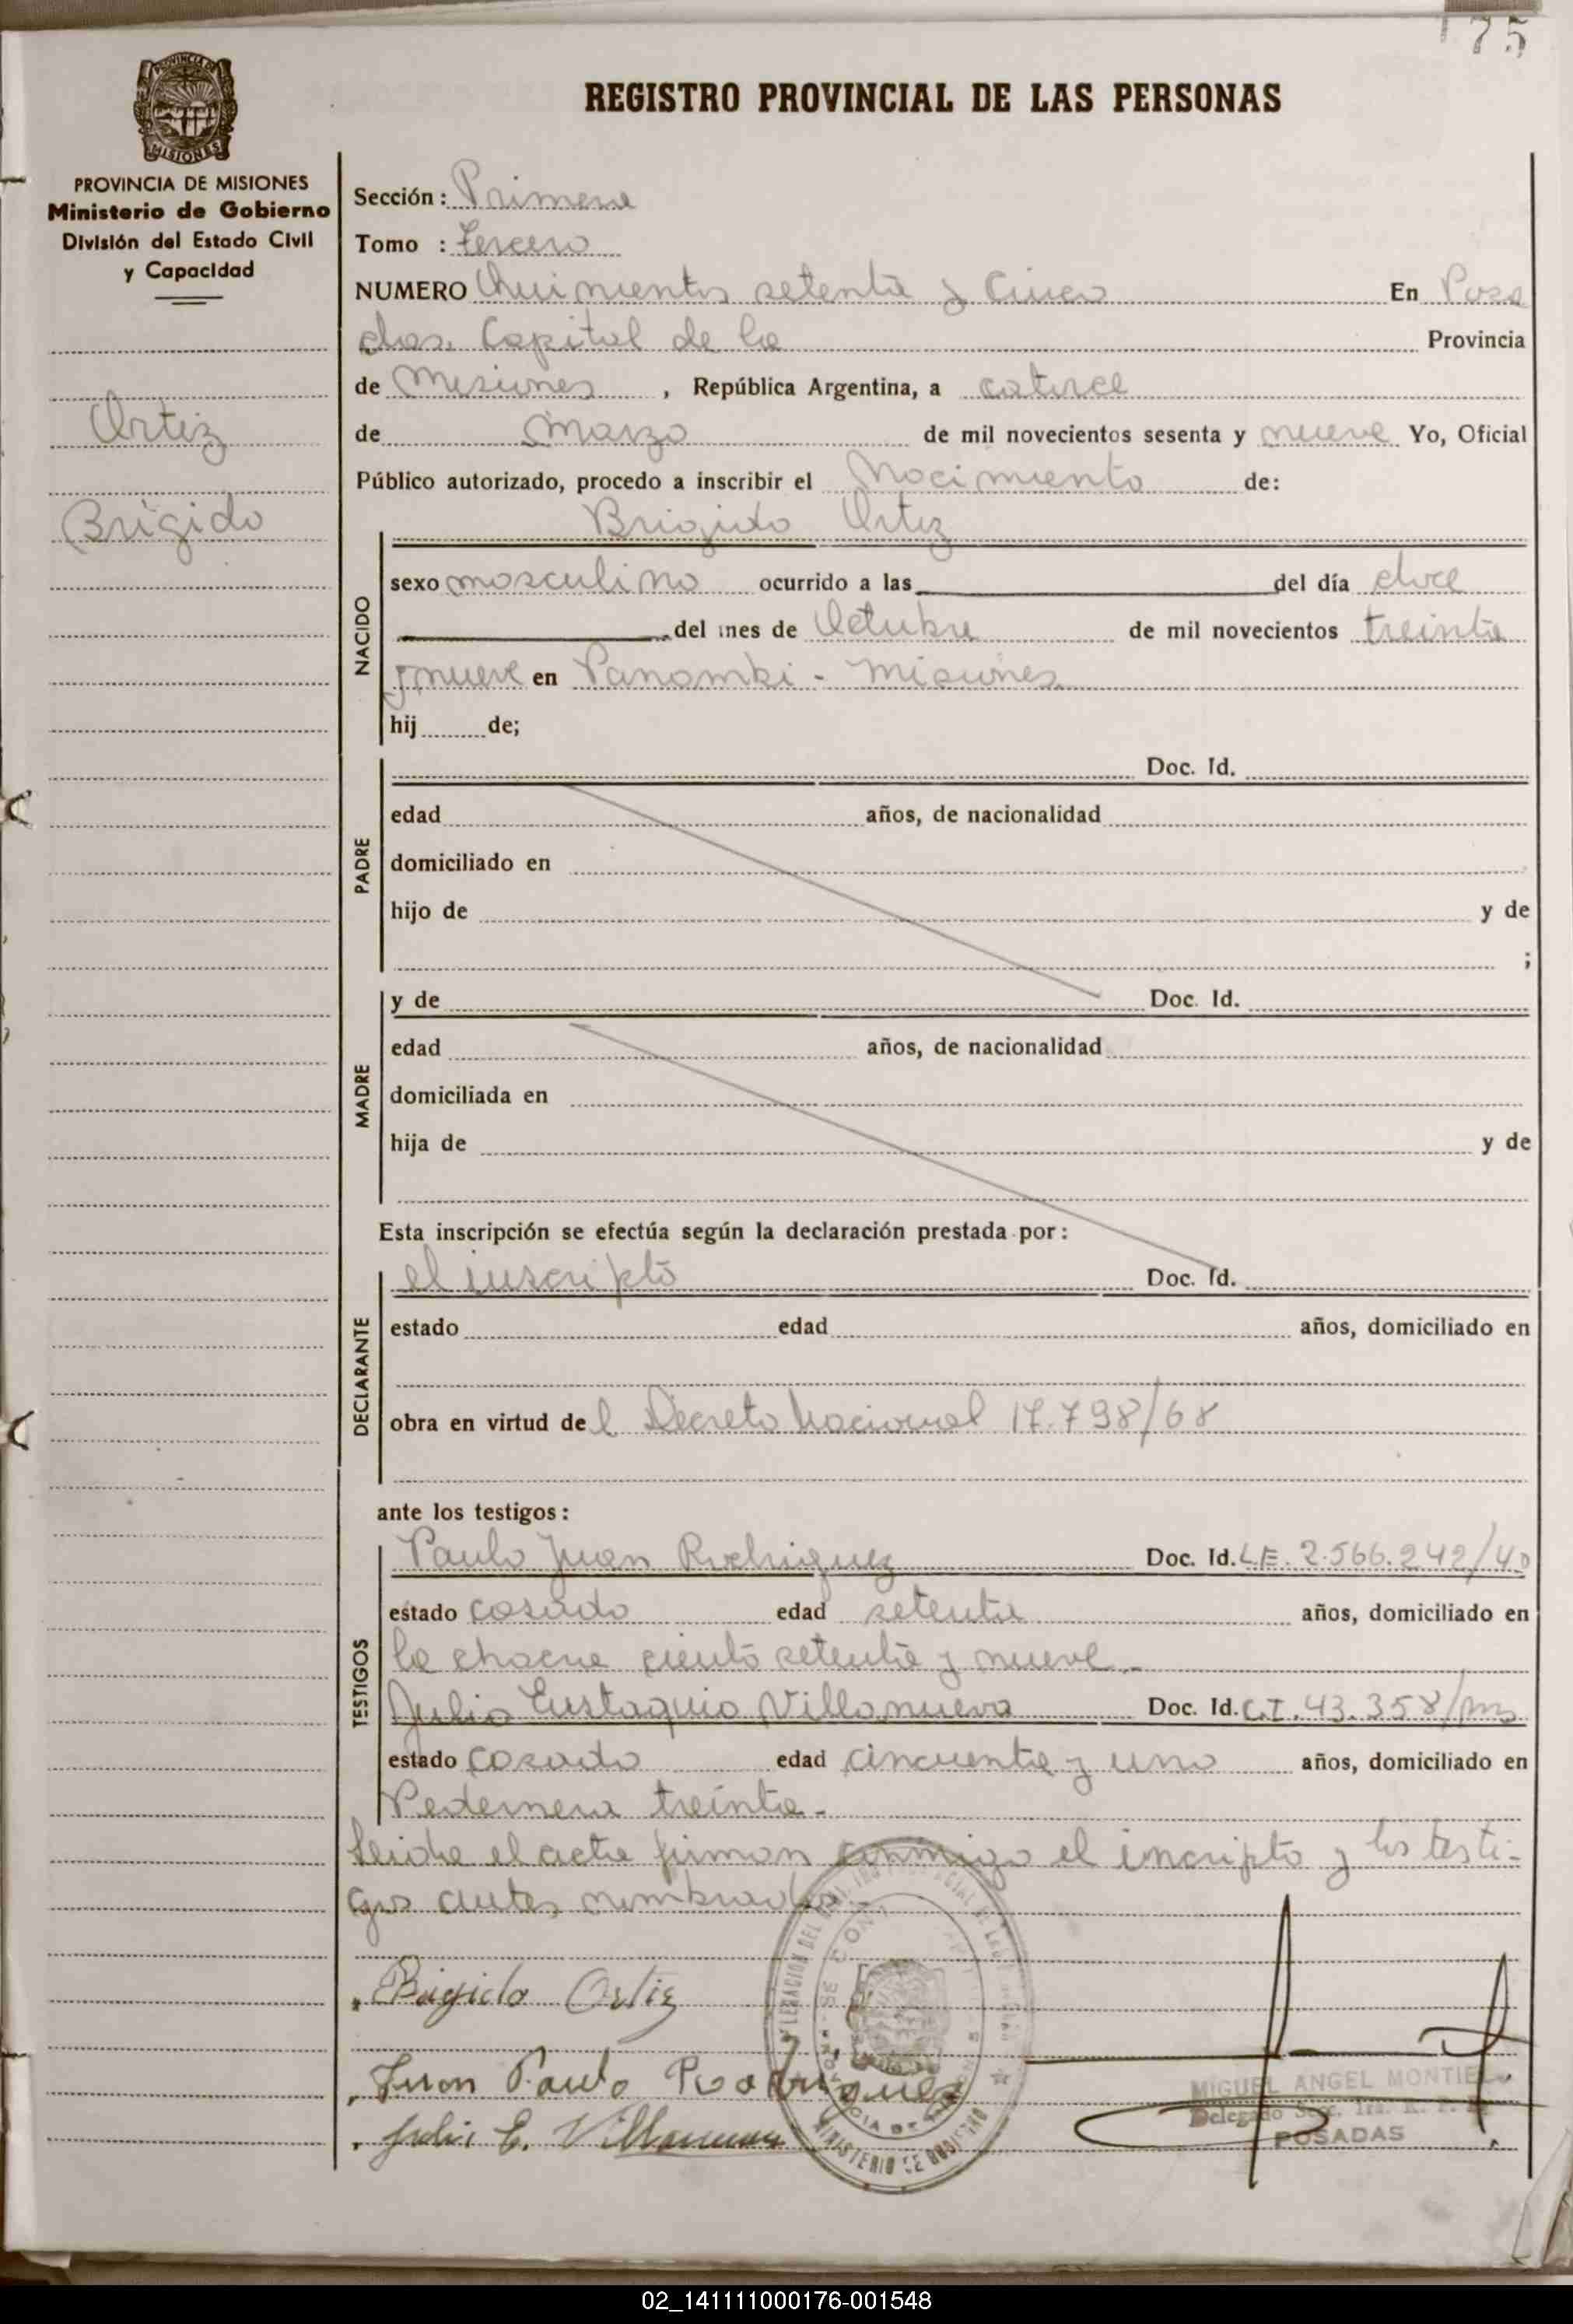 175
REGISTRO PROVINCIAL DE LAS PERSONAS
PROVINCIA DE MISIONES
MISIONES
PROVINCIA DE MISIONES
Ministerio de Gobierno
División del Estado Civil
y Capacidad
Ortiz
Brígido
Sección: Primera
Tomo : Tercero
NUMERO Quinientos setenta y cinco En Posa
das. Capital de la Provincia
de Misiones , República Argentina, a catorce
de Marzo de mil novecientos sesenta y nueve Yo, Oficial
Público autorizado, procedo a inscribir el Nacimiento de:
NACIDO
Brigido Ortiz
sexo masculino ocurrido a las del día doce
del mes de Octubre de mil novecientos treinta
y nueve en Panambi - Misiones
hij de;
PADRE
Doc. Id.
edad años, de nacionalidad
domiciliado en
hijo de y de
;
MADRE
y de Doc. Id.
edad años, de nacionalidad
domiciliada en
hija de y de
Esta inscripción se efectúa según la declaración prestada por:
DECLARANTE
el inscripto Doc. Id.
estado edad años, domiciliado en
obra en virtud de l Decreto Nacional 17.798/68
ante los testigos:
TESTIGOS
Paulo Juan Rodriguez Doc. Id. L.E. 2.566.242/40
estado casado edad setenta años, domiciliado en
la chacra ciento setenta y nueve-
Julio Eustaquio Villanueva Doc. Id. C.I. 43.358/
estado casado edad cincuenta y uno años, domiciliado en
Pedernera treinta-
Leida el acta firman conmigo el incripto y los testi-
gos antes nombrados
Brigido Ortiz
Juan Paulo Rodriguez
Julio E. Villanueva
MINISTERIO DE GOBIERNO
MIGUEL ANGEL MONTIEL
Delegado Sec. 1ra. R. P. P.
POSADAS
02_141111000176-001548